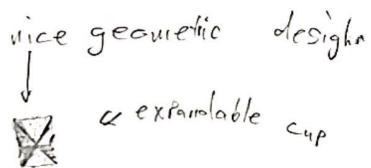 nice geometric design
a expandable cup